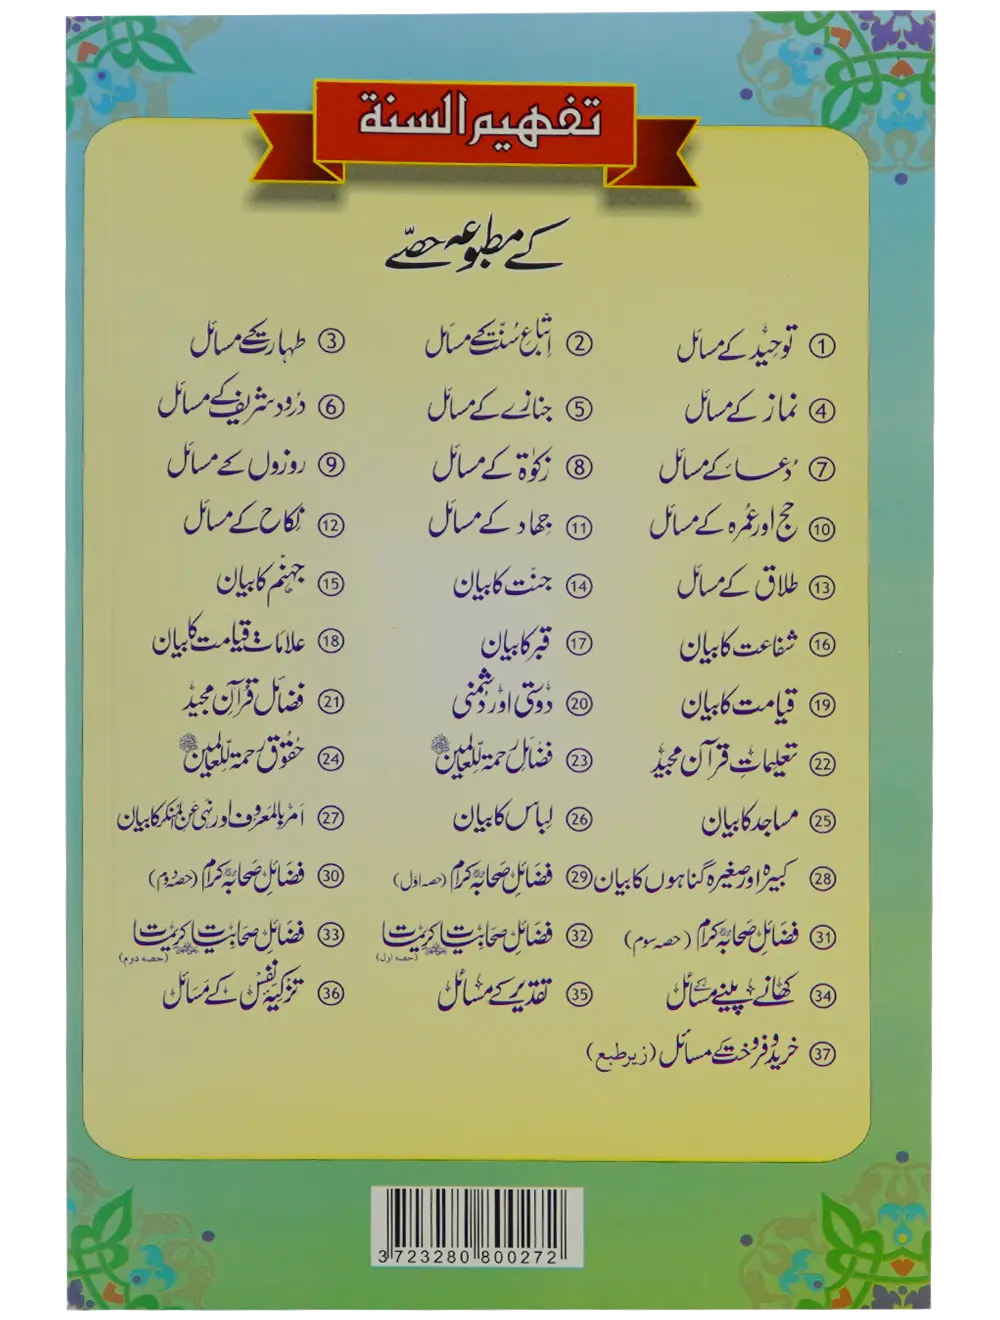 تفہیم السنۃ
کے مطبوعہ حصّے
① توحید کے مسائل ② اتباعِ سُنّت کے مسائل ③ طہارت کے مسائل
④ نماز کے مسائل ⑤ جنازے کے مسائل ⑥ درُود شریف کے مسائل
⑦ دُعا کے مسائل ⑧ زکوٰۃ کے مسائل ⑨ روزوں کے مسائل
⑩ حج اور عُمرہ کے مسائل ⑪ جہاد کے مسائل ⑫ نکاح کے مسائل
⑬ طلاق کے مسائل ⑭ جنّت کا بیان ⑮ جہنّم کا بیان
⑯ شفاعت کا بیان ⑰ قبر کا بیان ⑱ علاماتِ قیامت کا بیان
⑲ قیامت کا بیان ⑳ دوستی اور دُشمنی ㉑ فضائلِ قرآن مجید
㉒ تعلیماتِ قرآن مجید ㉓ فضائلِ رحمۃ لّلعالمین ﷺ ㉔ حقوقِ رحمۃ لّلعالمین ﷺ
㉕ مساجد کا بیان ㉖ لباس کا بیان ㉗ امر بالمعروف اور نہی عن المنکر کا بیان
㉘ کبیرہ اور صغیرہ گناہوں کا بیان ㉙ فضائلِ صحابہ کرام (حصہ اوّل) ㉚ فضائلِ صحابہ کرام (حصہ دوم)
㉛ فضائلِ صحابہ کرام (حصہ سوم) ㉜ فضائلِ صحابیات کریمات (حصہ اول) ㉝ فضائلِ صحابیات کریمات (حصہ دوم)
㉞ کھانے پینے کے مسائل ㉟ تقدیر کے مسائل ㊱ تزکیہ نفس کے مسائل
㊲ خرید و فروخت کے مسائل (زیر طبع)
3723280800272